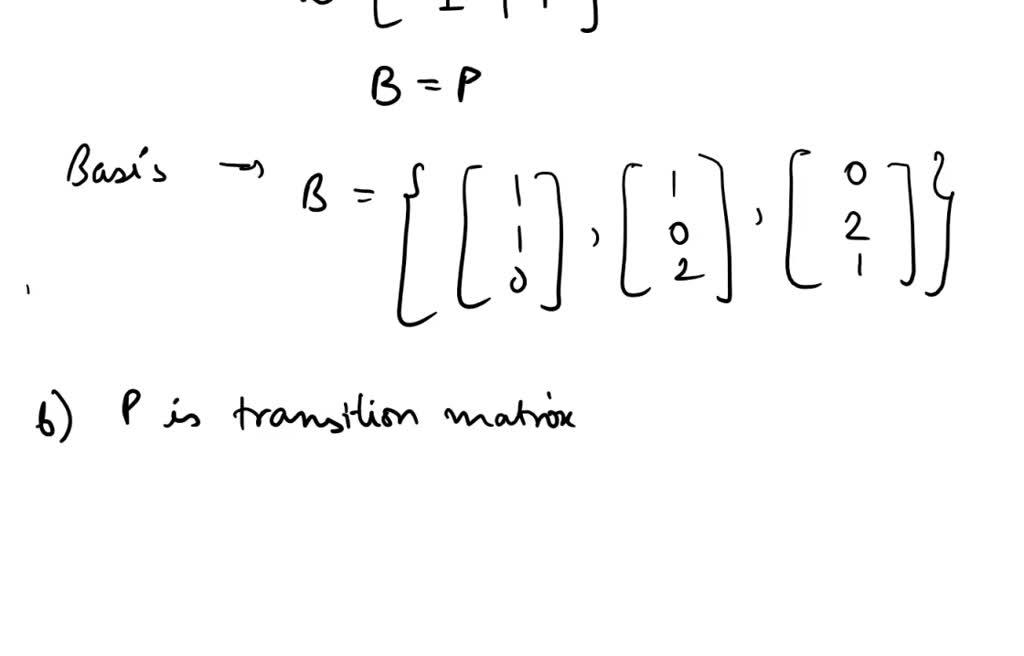 B = P
Basis → B = { [ 1 1 0 ] , [ 1 0 2 ] , [ 0 2 1 ] }
b) P is transition matrix